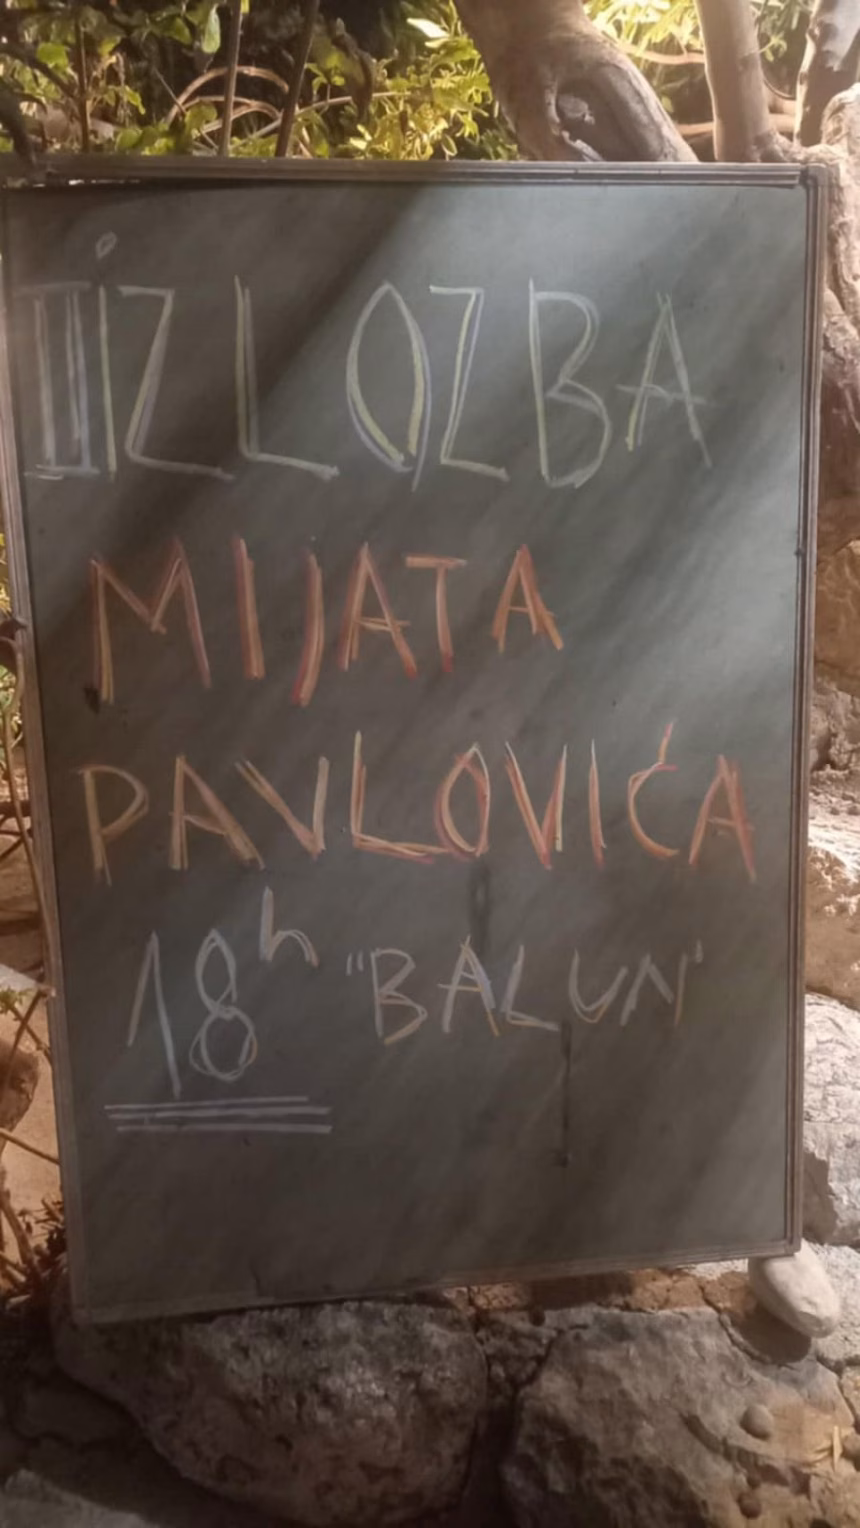 IZLOZBA
MIJATA
PAVLOVIĆA
18h "BALUN"